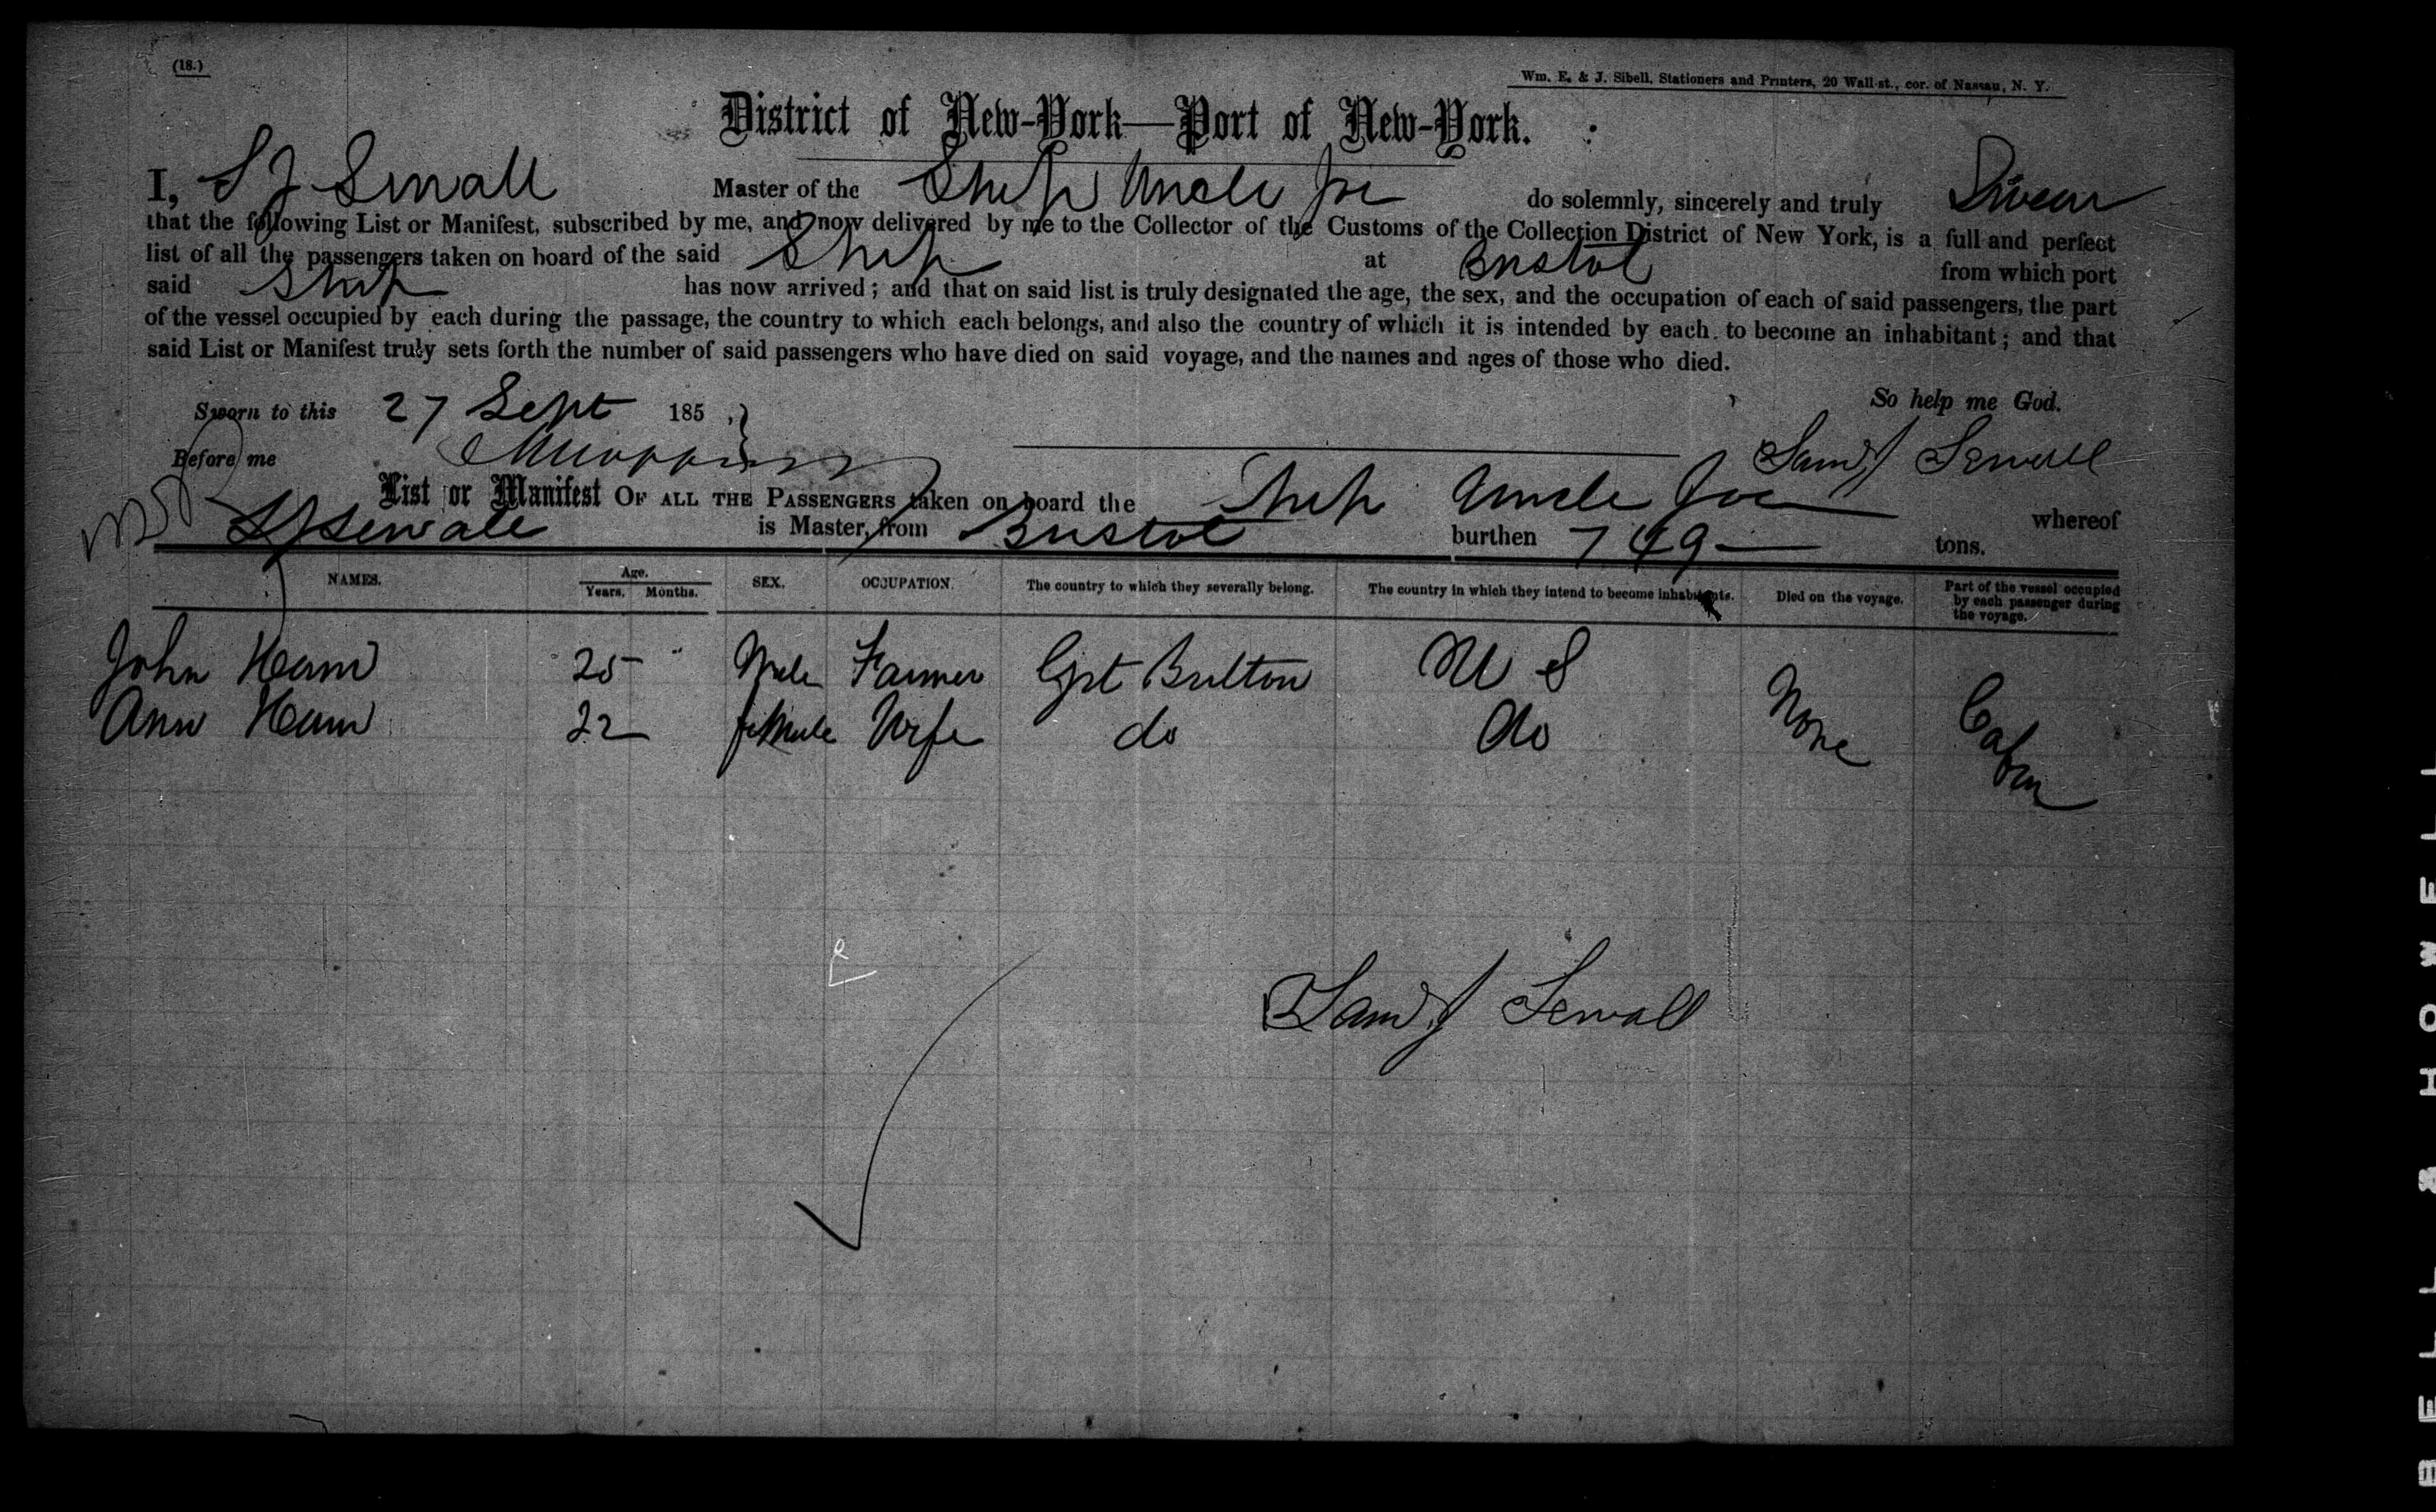 (18.)
Wm. E. & J. Sibell, Stationers and Printers, 20 Wall-st., cor. of Nassau, N. Y.
District of New-York—Port of New-York.
I, S J Small Master of the Ship Uncle Joe do solemnly, sincerely and truly Swear
that the following List or Manifest, subscribed by me, and now delivered by me to the Collector of the Customs of the Collection District of New York, is a full and perfect
list of all the passengers taken on board of the said Ship at Bristol from which port
said Ship has now arrived; and that on said list is truly designated the age, the sex, and the occupation of each of said passengers, the part
of the vessel occupied by each during the passage, the country to which each belongs, and also the country of which it is intended by each to become an inhabitant; and that
said List or Manifest truly sets forth the number of said passengers who have died on said voyage, and the names and ages of those who died.
Sworn to this 27 Sept 185 So help me God.
Before me Saml J Sewall
List or Manifest OF ALL THE PASSENGERS taken on board the Ship Uncle Joe whereof
S J Sewall is Master, from Bristol burthen 749 tons.
NAMES. Age. Years. Months. SEX. OCCUPATION. The country to which they severally belong. The country in which they intend to become inhabitants. Died on the voyage. Part of the vessel occupied by each passenger during the voyage.
John Ham 25 Male Farmer Grt Britton U S
Ann Ham 22 female Wife do do None Cabin
Saml J Sewall
BELL & HOWELL